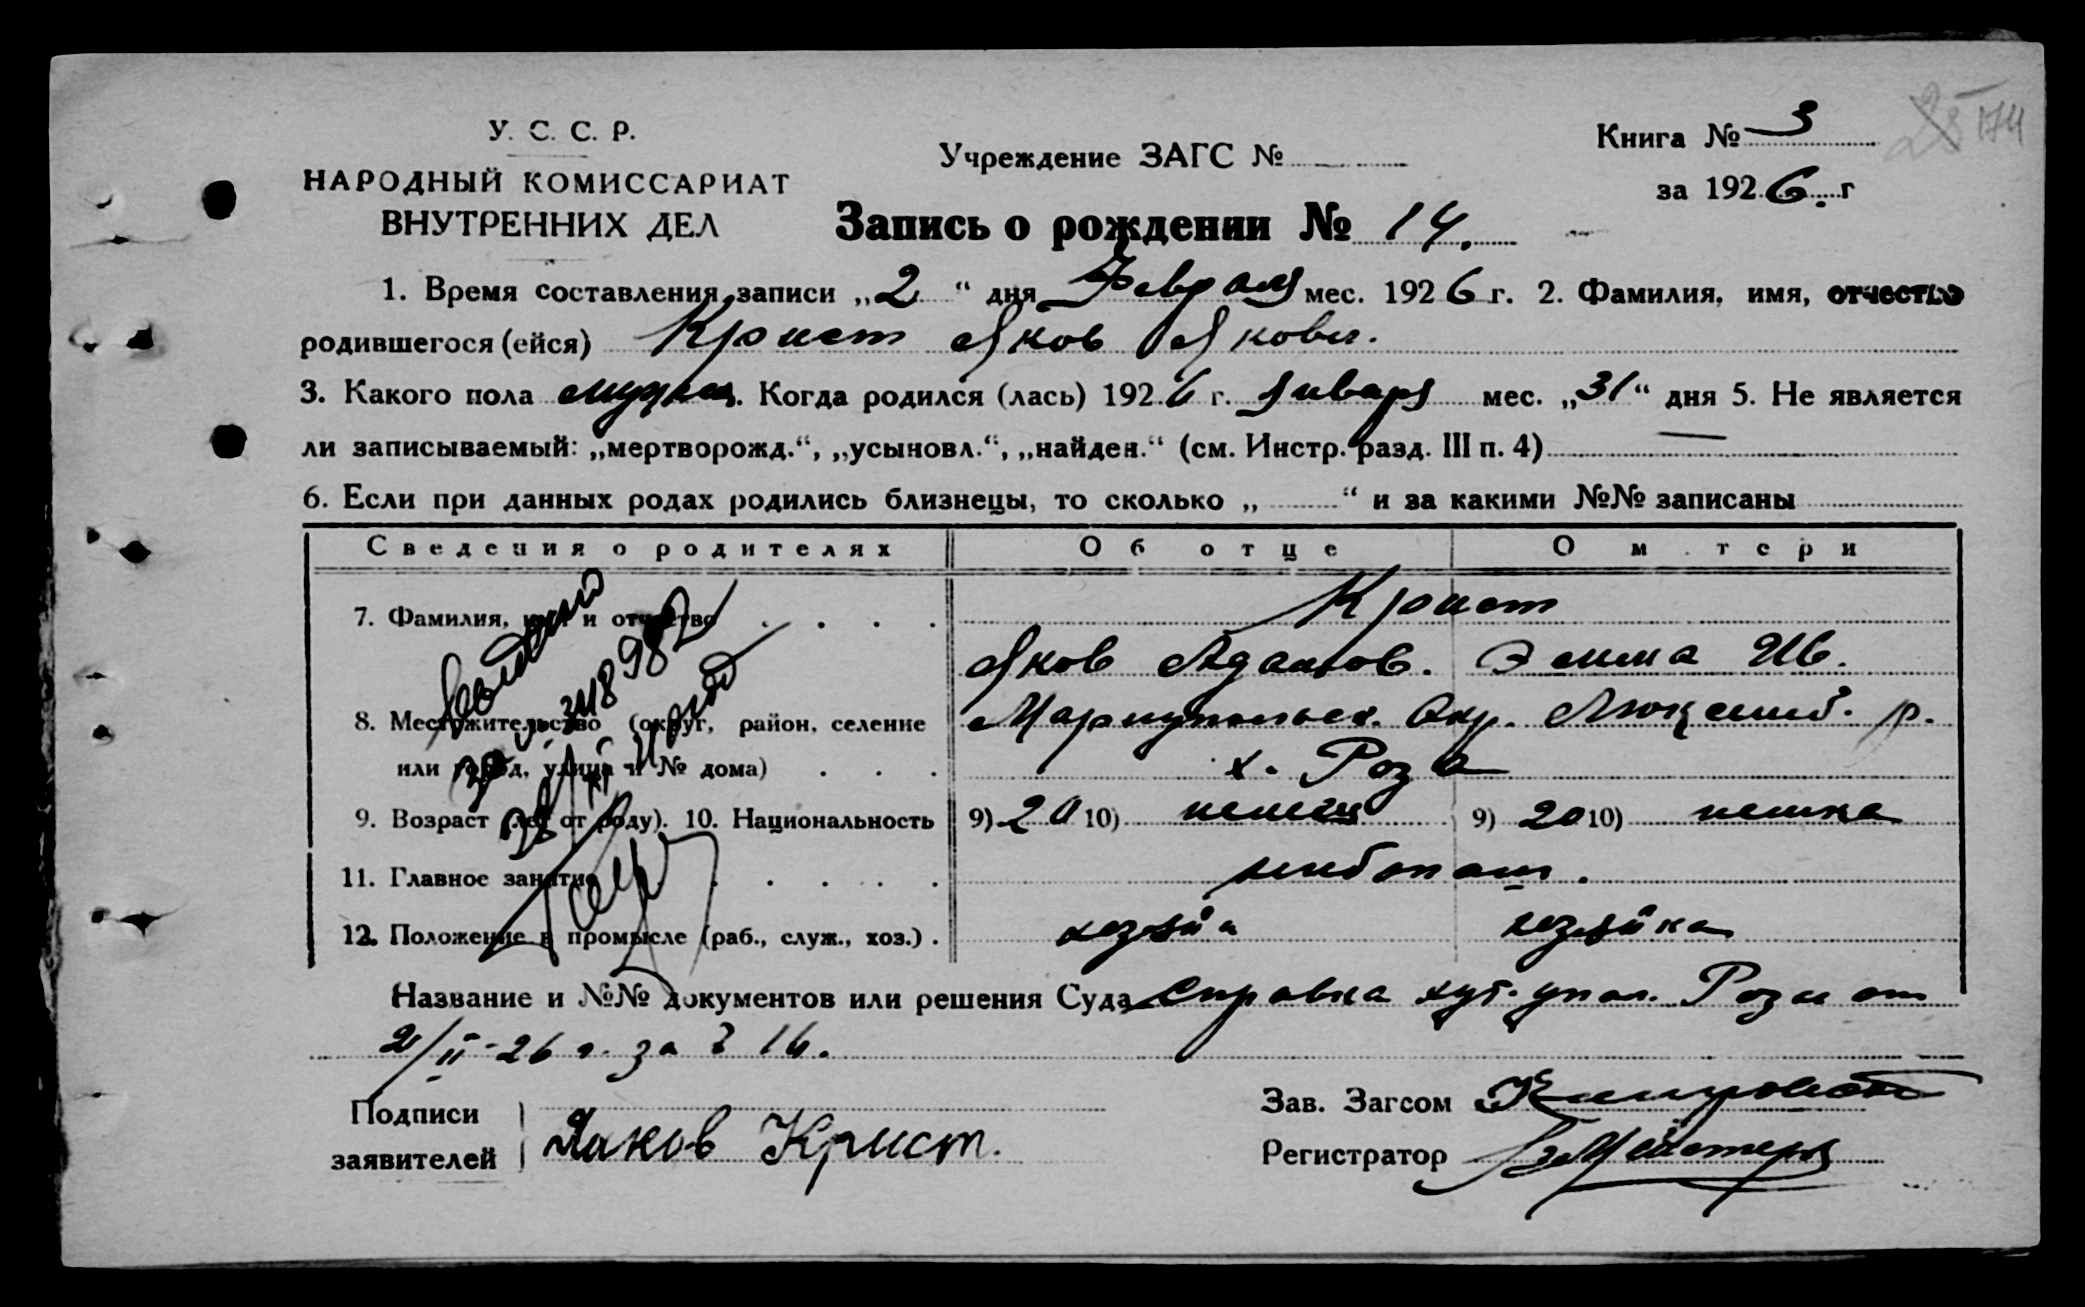 У. С. С. Р.
НАРОДНЫЙ КОМИССАРИАТ
ВНУТРЕННИХ ДЕЛ
Учреждение ЗАГС №
Книга № 3
за 1926 г
Запись о рождении № 14.
1. Время составления записи „2“ дня Февраля мес. 1926 г. 2. Фамилия, имя, отчество
родившегося (ейся) Крист Яков Яковл.
3. Какого пола мужск. Когда родился (лась) 1926 г. Января мес. „31“ дня 5. Не является
ли записываемый: „мертворожд.“, „усыновл.“, „найден.“ (см. Инстр. разд. III п. 4) —
6. Если при данных родах родились близнецы, то сколько „ “ и за какими №№ записаны
Сведения о родителях Об отце О м тери
7. Фамилия, имя и отчество Крист
Яков Адамов. Эмма Ив.
8. Местожительство (округ, район, селение Мариупольск. Окр. Люксемб. р.
или город, улица и № дома) х. Роза
9. Возраст (лет от роду). 10. Национальность 9) 20 10) немец 9) 20 10) немка
11. Главное занятие хлебопаш.
12. Положение в промысле (раб., служ., хоз.) хозяин хозяйка
Название и №№ документов или решения Суда Справка хут. упол. Розы от
2/II-26 г. за № 14.
Подписи
заявителей Яков Крист.
Зав. Загсом
Регистратор